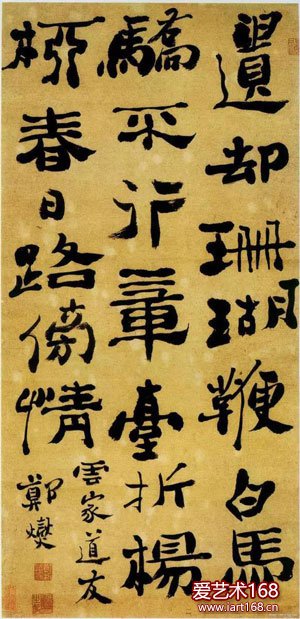 遺却珊瑚鞭白馬
驕不行章臺折楊
柳春日路傍情
雲家道友
鄭燮
爱艺术168
www.iart168.com.cn